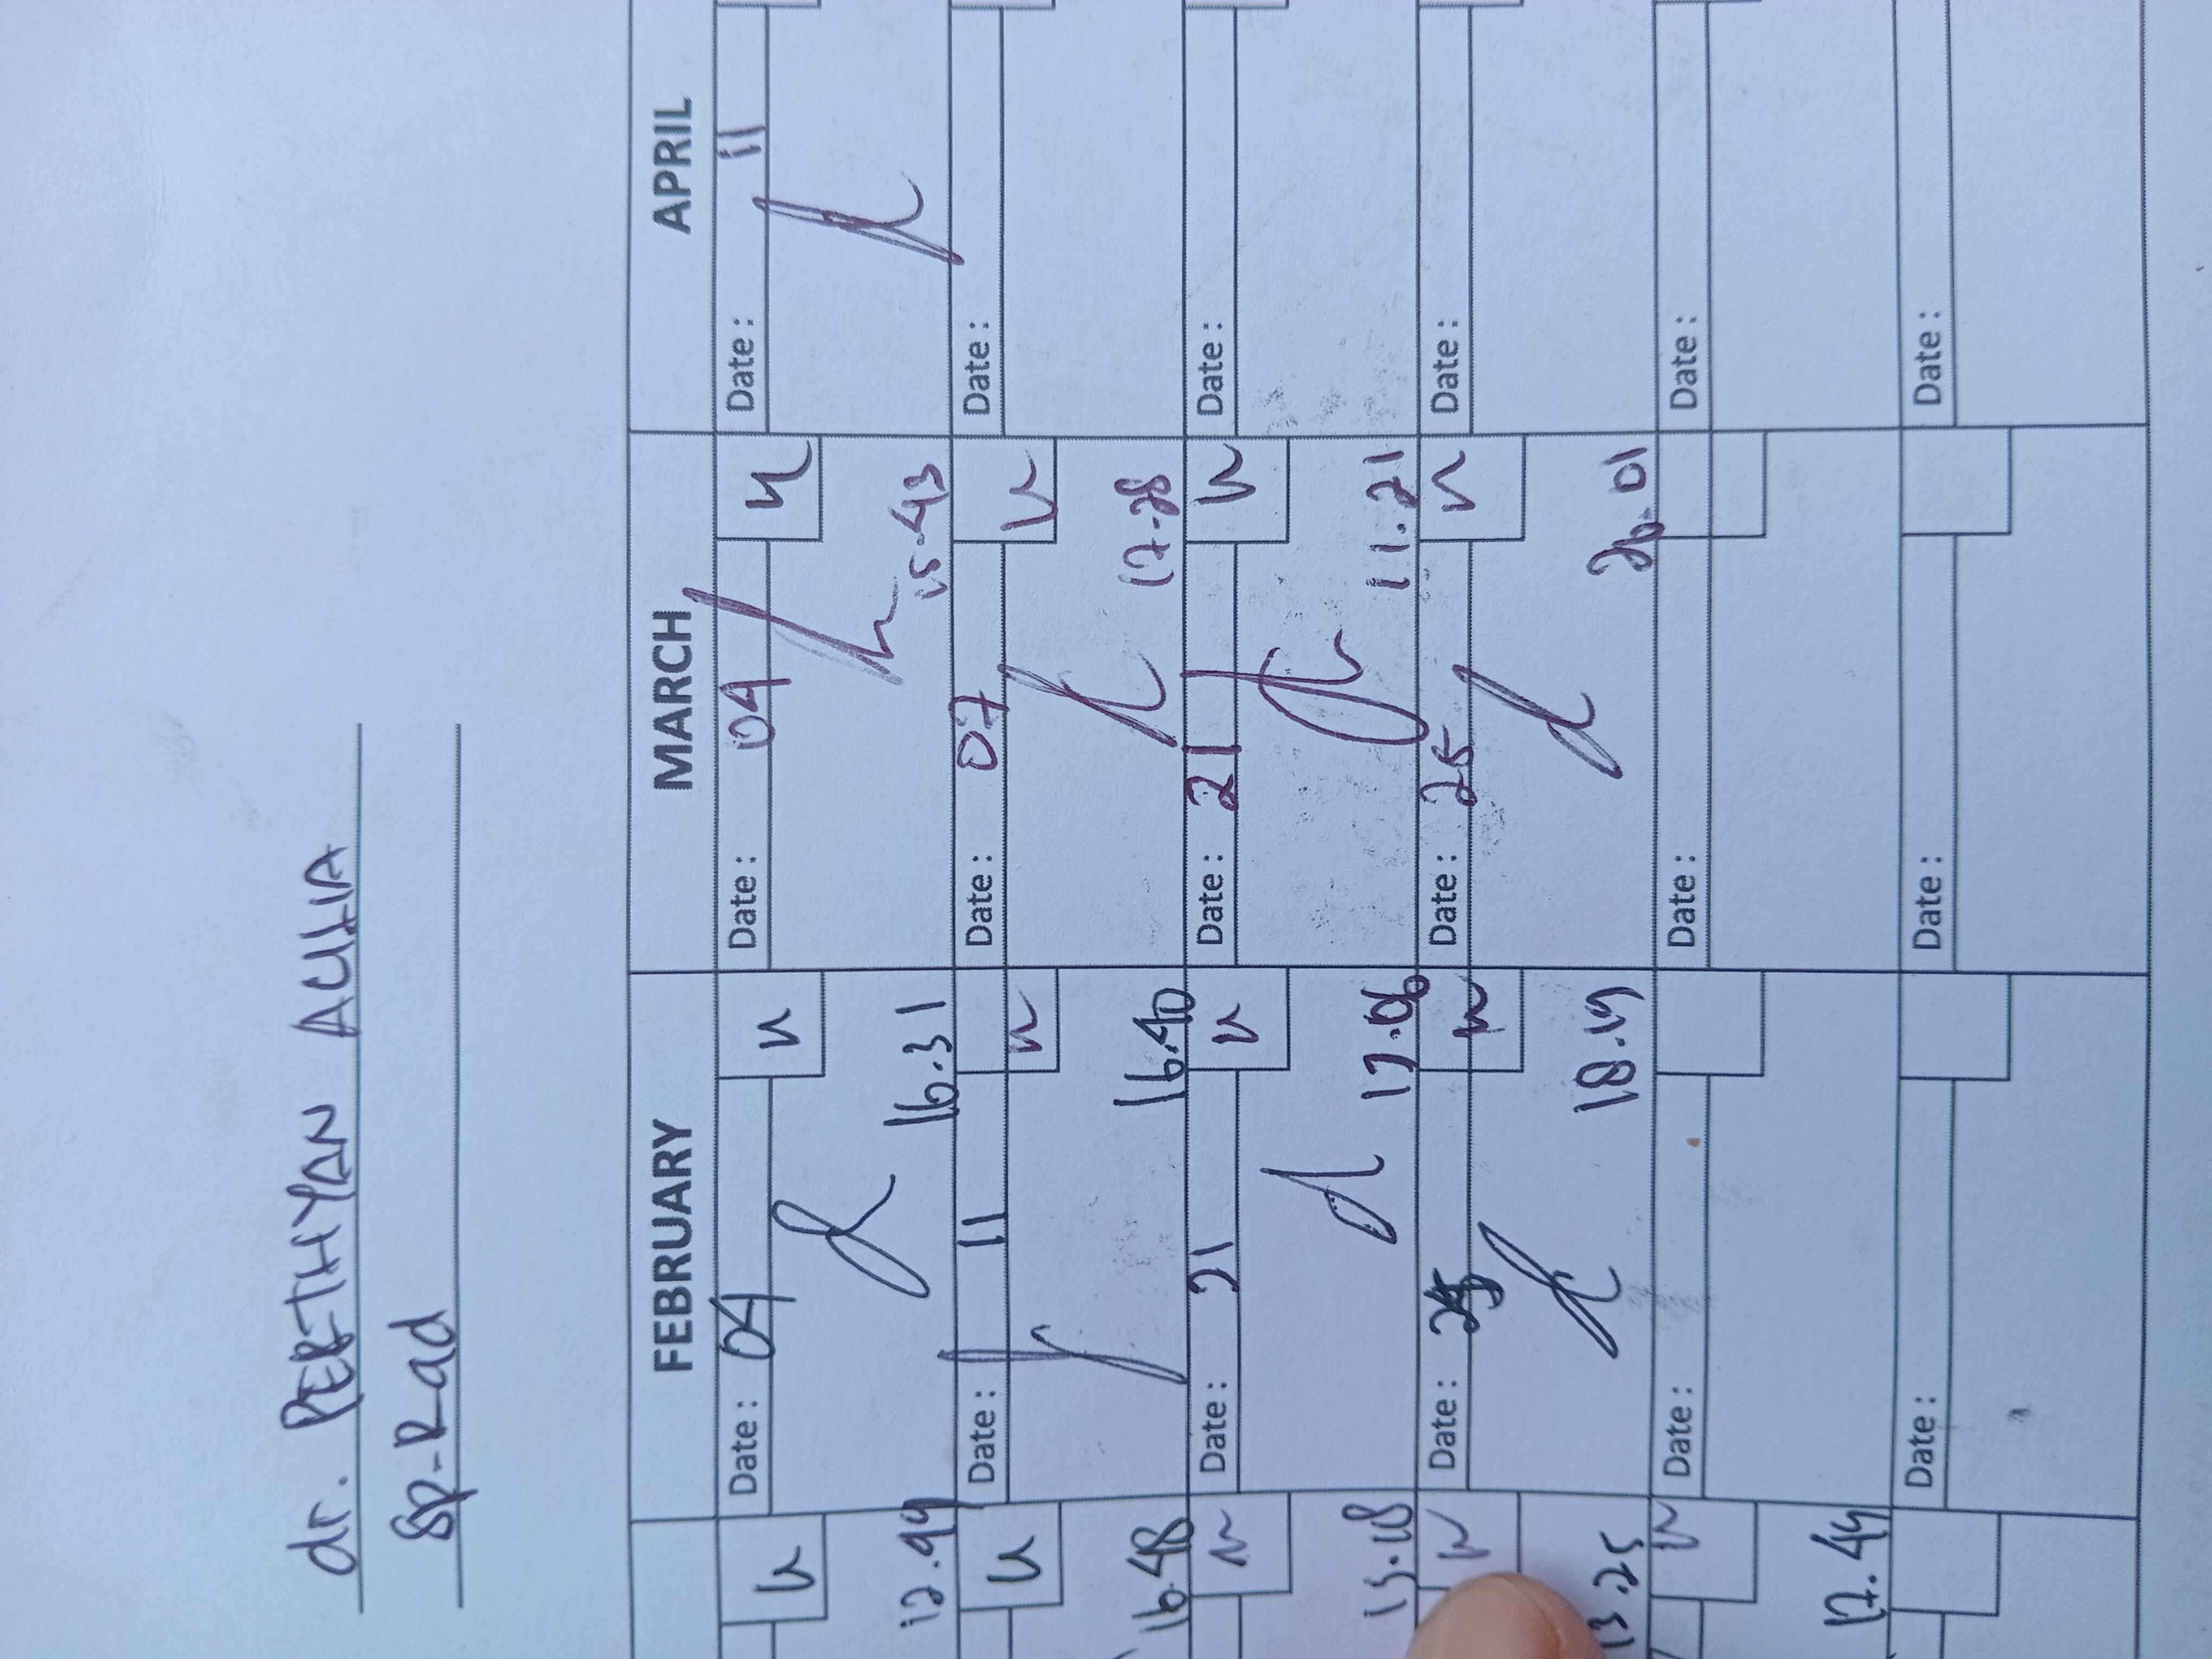 dr. PERTHYAN AULIA
Sp.Rad
FEBRUARY MARCH APRIL
Date : 04 Date : 04 Date : 11
12.44 16.31 15.43
Date : 11 Date : 07 Date :
16.48 16.40 17.28
Date : 21 Date : 21 Date :
17.06 11.21
Date : 25 Date : 25 Date :
13.25 18.19 20.01
Date : Date : Date :
17.44
Date : Date : Date :